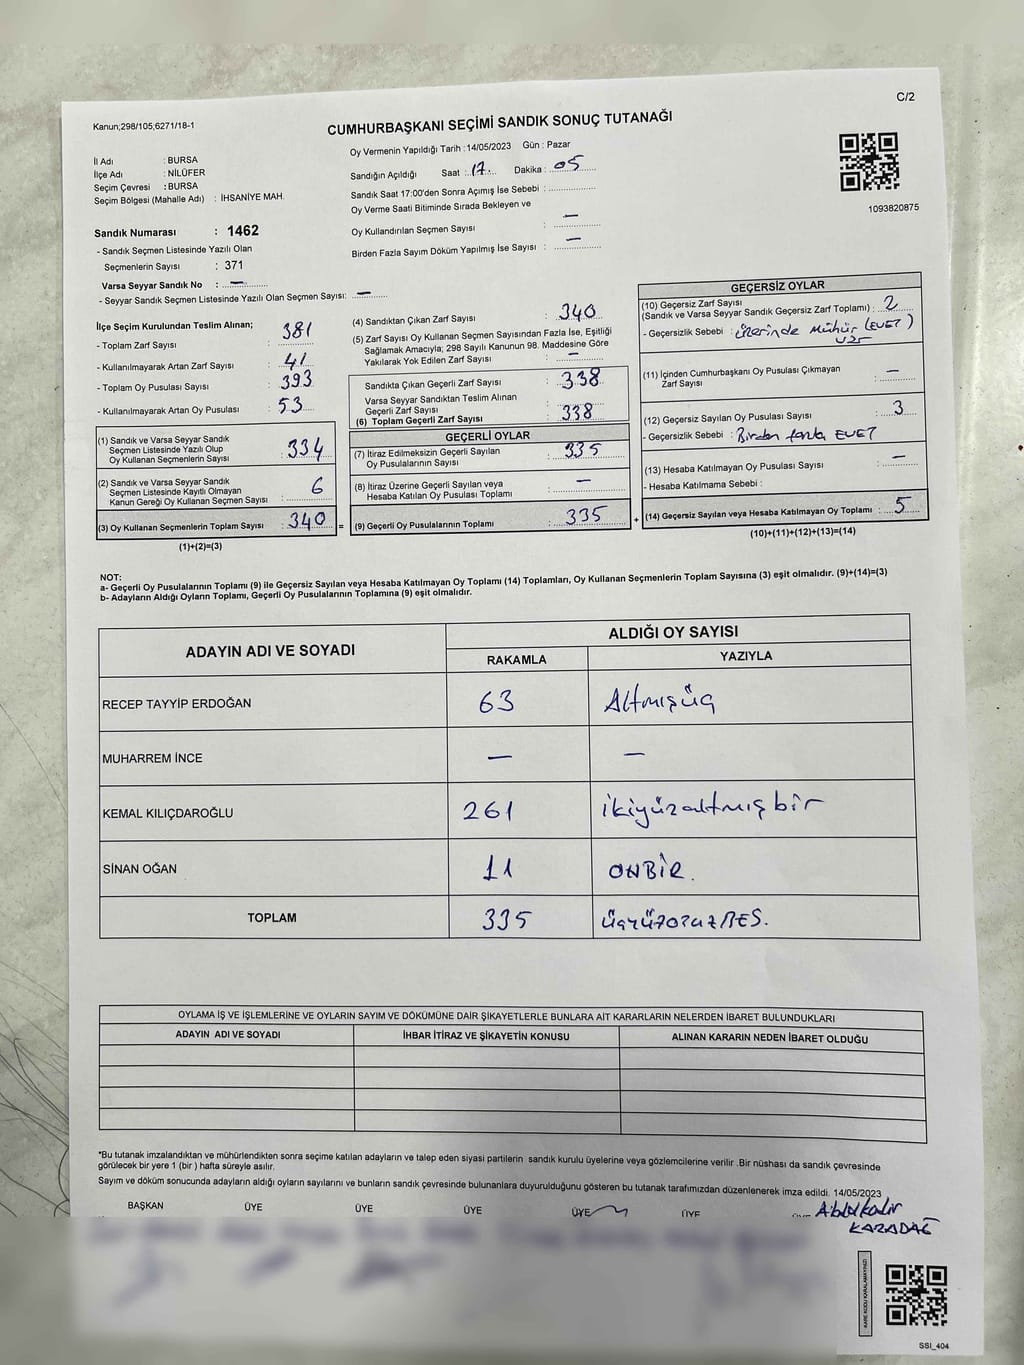 C/2
Kanun;298/105;6271/18-1
CUMHURBAŞKANI SEÇİMİ SANDIK SONUÇ TUTANAĞI
Oy Vermenin Yapıldığı Tarih :14/05/2023 Gün : Pazar
İl Adı : BURSA
İlçe Adı : NİLÜFER
Seçim Çevresi : BURSA
Seçim Bölgesi (Mahalle Adı) : İHSANİYE MAH.
Sandığın Açıldığı Saat : 17 Dakika : 05
Sandık Saat 17:00'den Sonra Açımış İse Sebebi :
Oy Verme Saati Bitiminde Sırada Bekleyen ve
Oy Kullandırılan Seçmen Sayısı : —
Birden Fazla Sayım Döküm Yapılmış İse Sayısı : —
1093820875
Sandık Numarası : 1462
- Sandık Seçmen Listesinde Yazılı Olan
Seçmenlerin Sayısı : 371
Varsa Seyyar Sandık No : —
- Seyyar Sandık Seçmen Listesinde Yazılı Olan Seçmen Sayısı: —
İlçe Seçim Kurulundan Teslim Alınan;
- Toplam Zarf Sayısı : 381
- Kullanılmayarak Artan Zarf Sayısı : 41
- Toplam Oy Pusulası Sayısı : 393
- Kullanılmayarak Artan Oy Pusulası : 53
(1) Sandık ve Varsa Seyyar Sandık
Seçmen Listesinde Yazılı Olup
Oy Kullanan Seçmenlerin Sayısı : 334
(2) Sandık ve Varsa Seyyar Sandık
Seçmen Listesinde Kayıtlı Olmayan
Kanun Gereği Oy Kullanan Seçmen Sayısı : 6
(3) Oy Kullanan Seçmenlerin Toplam Sayısı : 340 =
(1)+(2)=(3)
(4) Sandıktan Çıkan Zarf Sayısı : 340
(5) Zarf Sayısı Oy Kullanan Seçmen Sayısından Fazla İse, Eşitliği
Sağlamak Amacıyla; 298 Sayılı Kanunun 98. Maddesine Göre
Yakılarak Yok Edilen Zarf Sayısı : —
Sandıkta Çıkan Geçerli Zarf Sayısı : 338
Varsa Seyyar Sandıktan Teslim Alınan
Geçerli Zarf Sayısı
(6) Toplam Geçerli Zarf Sayısı : 338
GEÇERLİ OYLAR
(7) İtiraz Edilmeksizin Geçerli Sayılan
Oy Pusulalarının Sayısı : 335
(8) İtiraz Üzerine Geçerli Sayılan veya
Hesaba Katılan Oy Pusulası Toplamı : —
(9) Geçerli Oy Pusulalarının Toplamı : 335 +
GEÇERSİZ OYLAR
(10) Geçersiz Zarf Sayısı
(Sandık ve Varsa Seyyar Sandık Geçersiz Zarf Toplamı) : 2
- Geçersizlik Sebebi : üzerinde Mühür (EVET)
(11) İçinden Cumhurbaşkanı Oy Pusulası Çıkmayan
Zarf Sayısı : —
(12) Geçersiz Sayılan Oy Pusulası Sayısı : 3
- Geçersizlik Sebebi : Birden fazla EVET
(13) Hesaba Katılmayan Oy Pusulası Sayısı : —
- Hesaba Katılmama Sebebi :
(14) Geçersiz Sayılan veya Hesaba Katılmayan Oy Toplamı : 5
(10)+(11)+(12)+(13)=(14)
NOT:
a- Geçerli Oy Pusulalarının Toplamı (9) ile Geçersiz Sayılan veya Hesaba Katılmayan Oy Toplamı (14) Toplamları, Oy Kullanan Seçmenlerin Toplam Sayısına (3) eşit olmalıdır. (9)+(14)=(3)
b- Adayların Aldığı Oyların Toplamı, Geçerli Oy Pusulalarının Toplamına (9) eşit olmalıdır.
ADAYIN ADI VE SOYADI
ALDIĞI OY SAYISI
RAKAMLA YAZIYLA
RECEP TAYYİP ERDOĞAN 63 Altmışüç
MUHARREM İNCE — —
KEMAL KILIÇDAROĞLU 261 ikiyüzaltmışbir
SİNAN OĞAN 11 ONBİR.
TOPLAM 335 üçyüzotuzBEŞ.
OYLAMA İŞ VE İŞLEMLERİNE VE OYLARIN SAYIM VE DÖKÜMÜNE DAİR ŞİKAYETLERLE BUNLARA AİT KARARLARIN NELERDEN İBARET BULUNDUKLARI
ADAYIN ADI VE SOYADI İHBAR İTİRAZ VE ŞİKAYETİN KONUSU ALINAN KARARIN NEDEN İBARET OLDUĞU
*Bu tutanak imzalandıktan ve mühürlendikten sonra seçime katılan adayların ve talep eden siyasi partilerin sandık kurulu üyelerine veya gözlemcilerine verilir .Bir nüshası da sandık çevresinde
görülecek bir yere 1 (bir ) hafta süreyle asılır.
Sayım ve döküm sonucunda adayların aldığı oyların sayılarını ve bunların sandık çevresinde bulunanlara duyurulduğunu gösteren bu tutanak tarafımızdan düzenlenerek imza edildi. 14/05/2023
BAŞKAN ÜYE ÜYE ÜYE ÜYE ÜYE
Abdulkadir
KARADAĞ
KARE KODU KARALAMAYINIZ!
SSI_404